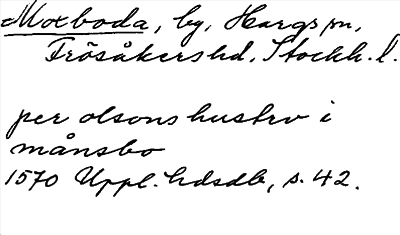 Moxboda, by, Hargs sn,
Frösåkers hd, Stockh. l.
per olsons hustrv i
månsbo
1570 Uppl. hdsdb, s. 42.